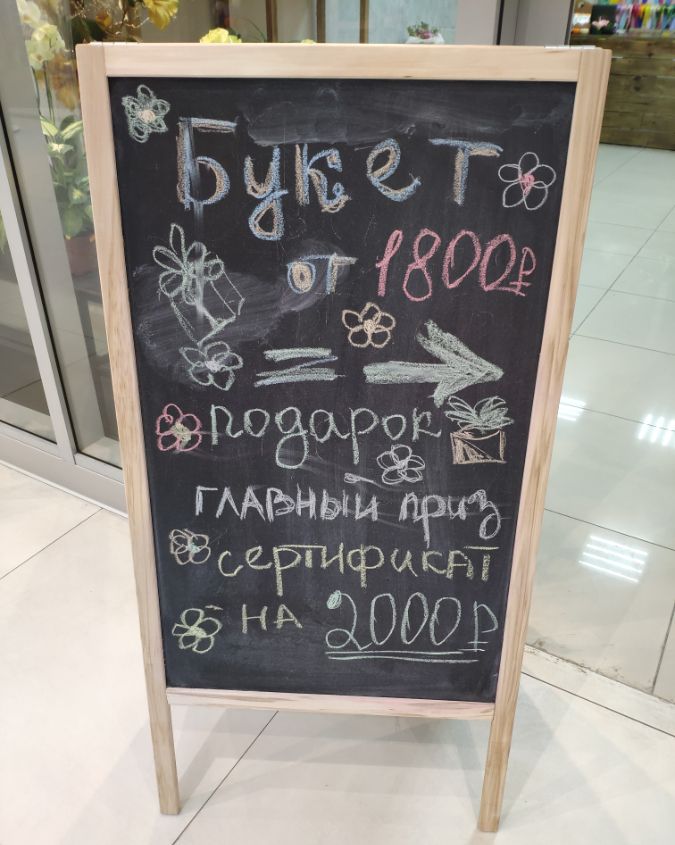 Букет
от 1800₽
= →
подарок
главный приз
сертификат
на 2000₽